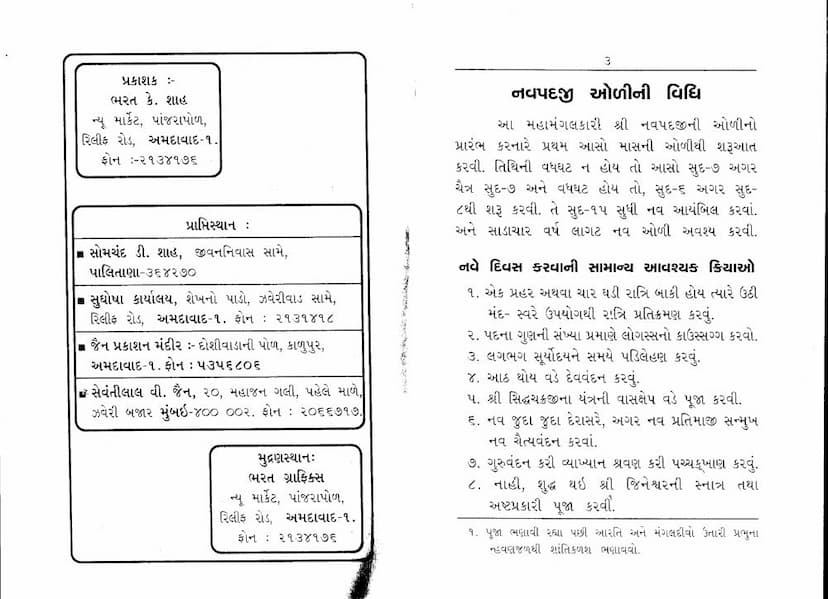 પ્રકાશક :-
ભરત કે. શાહ
ન્યૂ માર્કેટ, પાંજરાપોળ,
રિલીફ રોડ, અમદાવાદ-૧.
ફોન :-૨૧૩૪૧૭૬
પ્રાપ્તિસ્થાન :
■ સોમચંદ ડી. શાહ, જીવનનિવાસ સામે,
પાલિતાણા-૩૬૪૨૭૦
■ સુઘોષા કાર્યાલય, શેખનો પાડો, ઝવેરીવાડ સામે,
રિલીફ રોડ, અમદાવાદ-૧. ફોન : ૨૧૩૧૪૧૮
■ જૈન પ્રકાશન મંદીર :- દોશીવાડાની પોળ, કાળુપુર,
અમદાવાદ-૧. ફોન : ૫૩૫૬૮૦૬
■ સેવંતીલાલ વી. જૈન, ૨૦, મહાજન ગલી, પહેલે માળે,
ઝવેરી બજાર મુંબઇ-૪૦૦ ૦૦૨. ફોન : ૨૦૬૬૭૧૭.
મુદ્રણસ્થાન:
ભરત ગ્રાફિક્સ
ન્યૂ માર્કેટ, પાંજરાપોળ,
રિલીફ રોડ, અમદાવાદ-૧.
ફોન : ૨૧૩૪૧૭૬
૩
નવપદજી ઓળીની વિધિ
આ મહામંગલકારી શ્રી નવપદજીની ઓળીનો
પ્રારંભ કરનારે પ્રથમ આસો માસની ઓળીથી શરૂઆત
કરવી. તિથિની વધઘટ ન હોય તો આસો સુદ-૭ અગર
ચૈત્ર સુદ-૭ અને વધઘટ હોય તો, સુદ-૬ અગર સુદ-
૮થી શરૂ કરવી. તે સુદ-૧૫ સુધી નવ આયંબિલ કરવાં.
અને સાડાચાર વર્ષ લાગટ નવ ઓળી અવશ્ય કરવી.
નવે દિવસ કરવાની સામાન્ય આવશ્યક ક્રિયાઓ
૧. એક પ્રહર અથવા ચાર ઘડી રાત્રિ બાકી હોય ત્યારે ઉઠી
મંદ- સ્વરે ઉપયોગથી રાત્રિ પ્રતિક્રમણ કરવું.
૨. પદના ગુણની સંખ્યા પ્રમાણે લોગસ્સનો કાઉસ્સગ્ગ કરવો.
૩. લગભગ સૂર્યોદયને સમયે પડિલેહણ કરવું.
૪. આઠ થોય વડે દેવવંદન કરવું.
૫. શ્રી સિદ્ધચક્રજીના યંત્રની વાસક્ષેપ વડે પૂજા કરવી.
૬. નવ જુદા જુદા દેરાસરે, અગર નવ પ્રતિમાજી સન્મુખ
નવ ચૈત્યવંદન કરવાં.
૭. ગુરુવંદન કરી વ્યાખ્યાન શ્રવણ કરી પચ્ચક્‌ખાણ કરવું.
૮. નાહી, શુદ્ધ થઇ શ્રી જિનેશ્વરની સ્નાત્ર તથા
અષ્ટપ્રકારી પૂજા કરવી૧.
૧. પુજા ભણાવી રહ્યા પછી આરતિ અને મંગલદીવો ઉતારી પ્રભુના
ન્હવણજળથી શાંતિકળશ ભણાવવો.